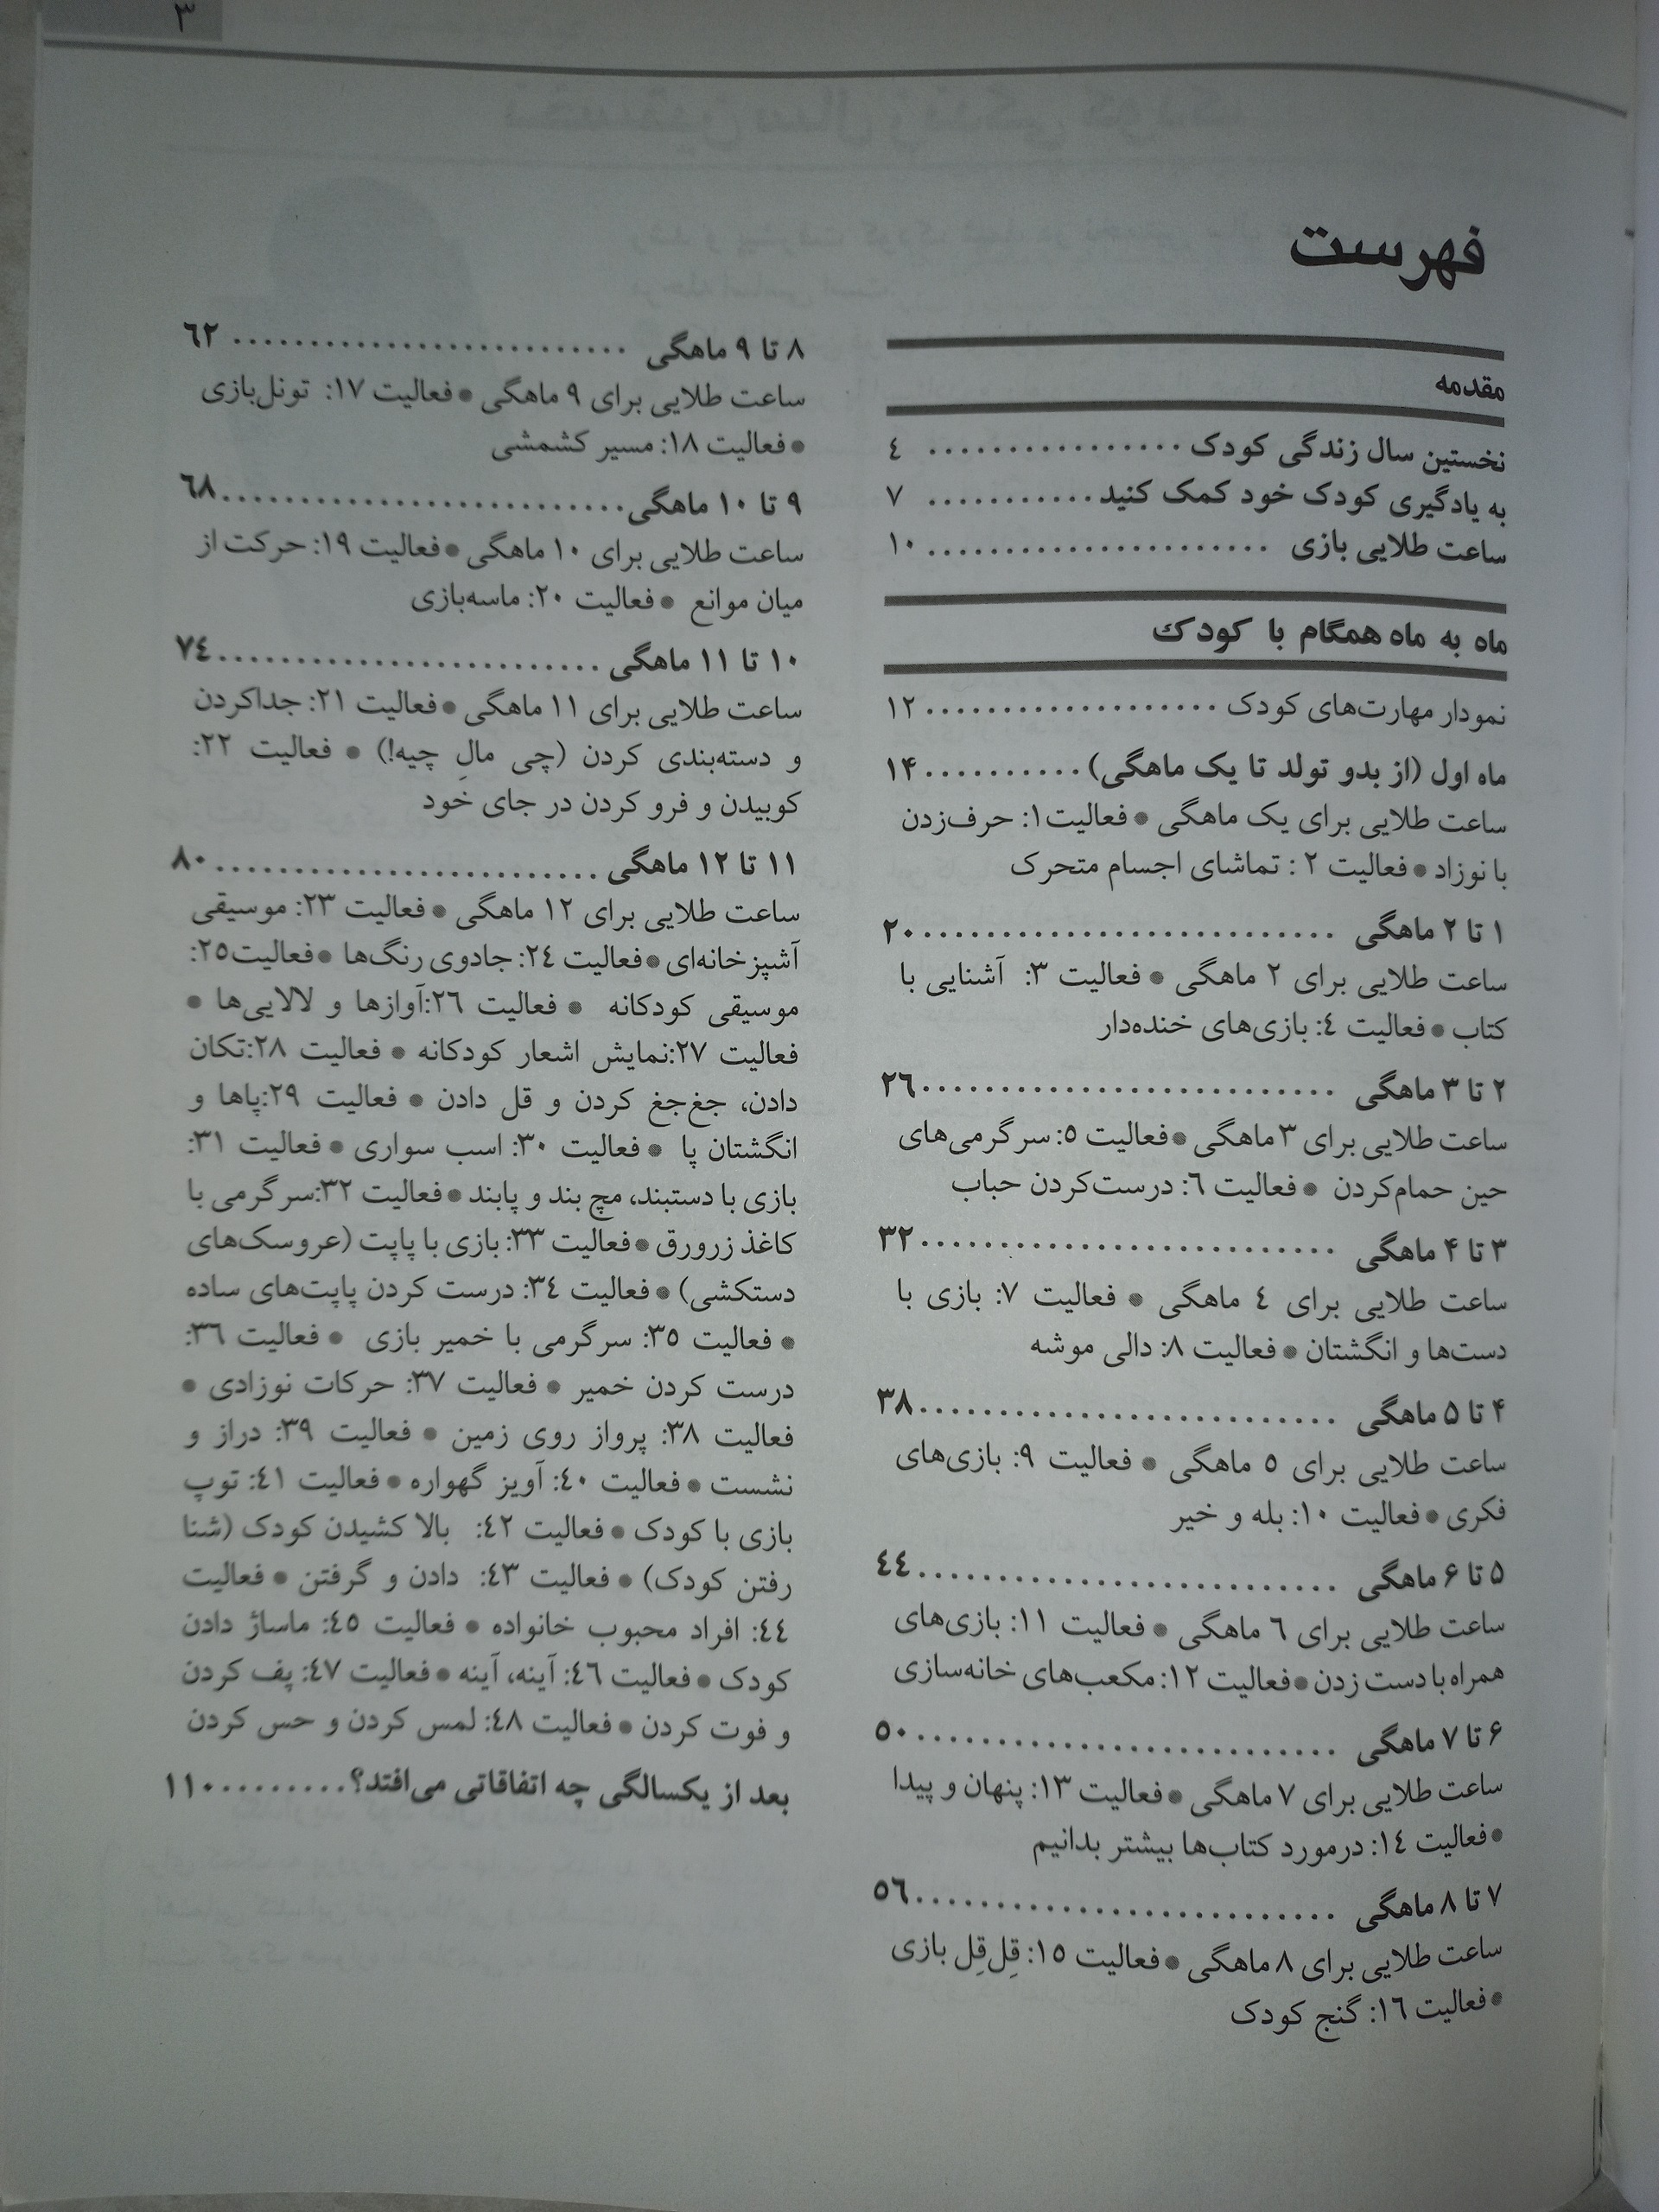 ۳
فهرست
مقدمه
نخستین سال زندگی کودک ................ ٤
به یادگیری کودک خود کمک کنید ........... ۷
ساعت طلایی بازی ...................... ۱۰
ماه به ماه همگام با کودک
نمودار مهارت‌های کودک ................... ۱۲
ماه اول (از بدو تولد تا یک ماهگی) .......... ۱۴
ساعت طلایی برای یک ماهگی ● فعالیت۱: حرف‌زدن
با نوزاد ● فعالیت ۲ : تماشای اجسام متحرک
۱ تا ۲ ماهگی ........................... ۲۰
ساعت طلایی برای ۲ ماهگی ● فعالیت ۳: آشنایی با
کتاب ● فعالیت ٤: بازی‌های خنده‌دار
۲ تا ۳ ماهگی ........................... ۲٦
ساعت طلایی برای ۳ ماهگی ● فعالیت ٥: سرگرمی‌های
حین حمام‌کردن ● فعالیت ٦: درست‌کردن حباب
۳ تا ۴ ماهگی ........................... ۳۲
ساعت طلایی برای ٤ ماهگی ● فعالیت ۷: بازی با
دست‌ها و انگشتان ● فعالیت ۸: دالی موشه
۴ تا ۵ ماهگی ........................... ۳۸
ساعت طلایی برای ٥ ماهگی ● فعالیت ۹: بازی‌های
فکری ● فعالیت ۱۰: بله و خیر
۵ تا ۶ ماهگی ........................... ٤٤
ساعت طلایی برای ٦ ماهگی ● فعالیت ۱۱: بازی‌های
همراه با دست زدن ● فعالیت ۱۲: مکعب‌های خانه‌سازی
۶ تا ۷ ماهگی ........................... ٥۰
ساعت طلایی برای ۷ ماهگی ● فعالیت ۱۳: پنهان و پیدا
● فعالیت ۱٤: درمورد کتاب‌ها بیشتر بدانیم
۷ تا ۸ ماهگی ........................... ٥٦
ساعت طلایی برای ۸ ماهگی ● فعالیت ۱٥: قِل‌قِل بازی
● فعالیت ۱٦: گنج کودک
۸ تا ۹ ماهگی .......................... ٦۲
ساعت طلایی برای ۹ ماهگی ● فعالیت ۱۷: تونل‌بازی
● فعالیت ۱۸: مسیر کشمشی
۹ تا ۱۰ ماهگی .......................... ٦۸
ساعت طلایی برای ۱۰ ماهگی ● فعالیت ۱۹: حرکت از
میان موانع ● فعالیت ۲۰: ماسه‌بازی
۱۰ تا ۱۱ ماهگی ......................... ۷٤
ساعت طلایی برای ۱۱ ماهگی ● فعالیت ۲۱: جداکردن
و دسته‌بندی کردن (چی مالِ چیه!) ● فعالیت ۲۲:
کوبیدن و فرو کردن در جای خود
۱۱ تا ۱۲ ماهگی ......................... ۸۰
ساعت طلایی برای ۱۲ ماهگی ● فعالیت ۲۳: موسیقی
آشپزخانه‌ای ● فعالیت ۲٤: جادوی رنگ‌ها ● فعالیت۲٥:
موسیقی کودکانه ● فعالیت ۲٦:آوازها و لالایی‌ها ●
فعالیت ۲۷:نمایش اشعار کودکانه ● فعالیت ۲۸:تکان
دادن، جغ‌جغ کردن و قل دادن ● فعالیت ۲۹:پاها و
انگشتان پا ● فعالیت ۳۰: اسب سواری ● فعالیت ۳۱:
بازی با دستبند، مچ بند و پابند ● فعالیت ۳۲:سرگرمی با
کاغذ زرورق ● فعالیت ۳۳: بازی با پاپت (عروسک‌های
دستکشی) ● فعالیت ۳٤: درست کردن پاپت‌های ساده
● فعالیت ۳٥: سرگرمی با خمیر بازی ● فعالیت ۳٦:
درست کردن خمیر ● فعالیت ۳۷: حرکات نوزادی ●
فعالیت ۳۸: پرواز روی زمین ● فعالیت ۳۹: دراز و
نشست ● فعالیت ٤۰: آویز گهواره ● فعالیت ٤۱: توپ
بازی با کودک ● فعالیت ٤۲: بالا کشیدن کودک (شنا
رفتن کودک) ● فعالیت ٤۳: دادن و گرفتن ● فعالیت
٤٤: افراد محبوب خانواده ● فعالیت ٤٥: ماساژ دادن
کودک ● فعالیت ٤٦: آینه، آینه ● فعالیت ٤۷: پف کردن
و فوت کردن ● فعالیت ٤۸: لمس کردن و حس کردن
بعد از یکسالگی چه اتفاقاتی می‌افتد؟ ......... ۱۱۰